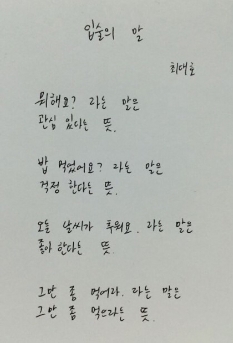 입술의 말
최대호
뭐해요? 라는 말은
관심 있다는 뜻.
밥 먹었어요? 라는 말은
걱정 한다는 뜻.
오늘 날씨가 추워요. 라는 말은
좋아 한다는 뜻.
그만 좀 먹어라. 라는 말은
그만 좀 먹으라는 뜻.